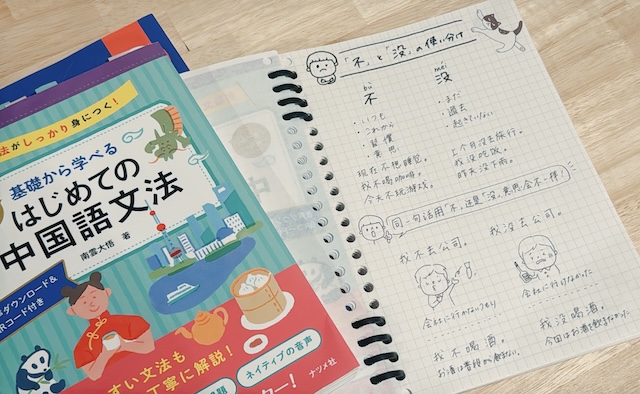 法がしっかり身につく！
基礎から学べる
はじめての
中国語文法
南雲大悟 著
ダウンロード＆
QRコード付き
すい文法も
丁寧に解説！
ネイティブの音声
ター！
ナツメ社
「不」と「没」の使い分け
bù
不
・いつも
・これから
・習慣
・意思
现在不想睡觉。
我不喝咖啡。
今天不玩游戏。
méi
没
・まだ
・過去
・起きていない
上个月没去旅行。
我没吃饭。
昨天没下雨。
同一句话用「不」还是「没」意思会不一样！
我不去公司。
会社に行かないつもり
我不喝酒。
お酒は普段から飲まない。
我没去公司。
会社に行かなかった
我没喝酒。
今回はお酒を飲まなかった